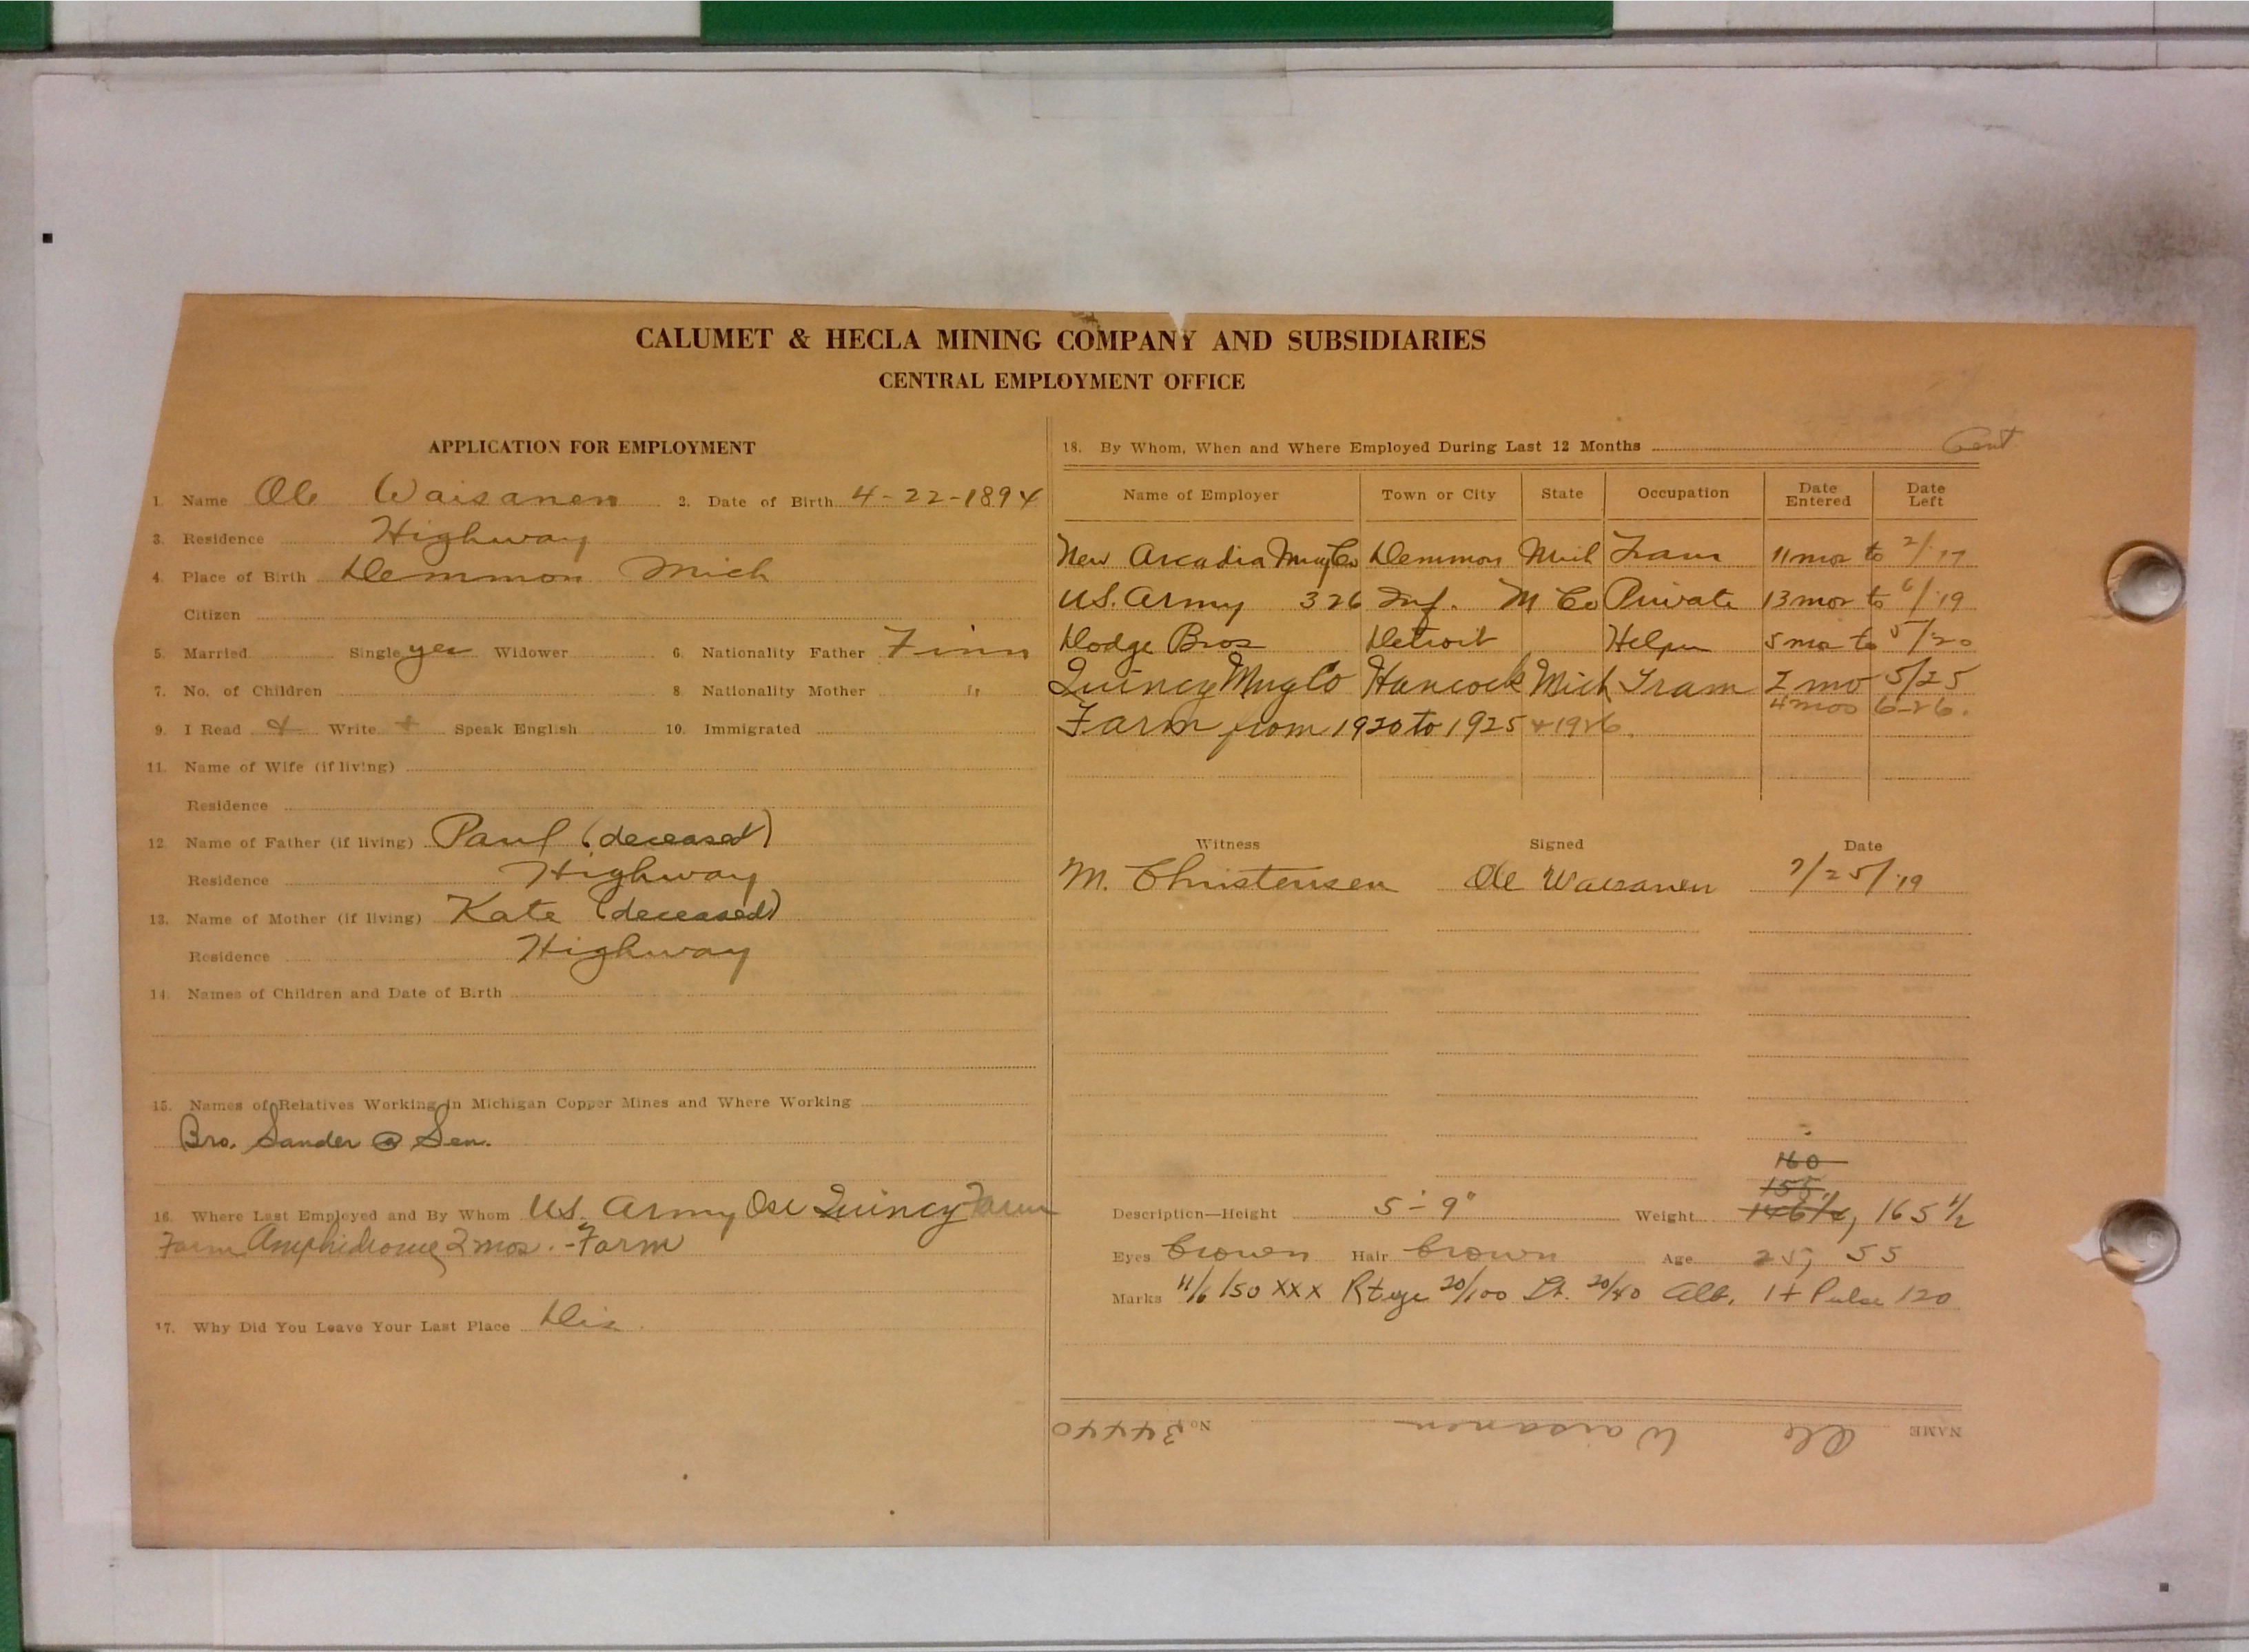 CALUMET & HECLA MINING COMPANY AND SUBSIDIARIES
CENTRAL EMPLOYMENT OFFICE
APPLICATION FOR EMPLOYMENT
1. Name Ole Waisanen 2. Date of Birth 4-22-1894
3. Residence Highway
4. Place of Birth Demmon Mich
Citizen
5. Married Single yes Widower 6. Nationality Father Finn
7. No. of Children 8. Nationality Mother "
9. I Read + Write + Speak English 10. Immigrated
11. Name of Wife (if living)
Residence
12. Name of Father (if living) Paul (deceased)
Residence Highway
13. Name of Mother (if living) Kate (deceased)
Residence Highway
14. Names of Children and Date of Birth
15. Names of Relatives Working in Michigan Copper Mines and Where Working
Bro. Sander @ Sen.
16. Where Last Employed and By Whom U.S. Army Quincy Farm
Farm Amphidrome 2 mos. - Farm
17. Why Did You Leave Your Last Place Dis.
18. By Whom, When and Where Employed During Last 12 Months Cent
Name of Employer Town or City State Occupation Date Entered Date Left
New Arcadia Mng Co Demmon Mich Tram 11 mos to 2/17
U.S. Army 326 Inf. M Co Private 13 mos to 6/19
Dodge Bros Detroit Helper 5 mos to 5/20
Quincy Mng Co Hancock Mich Tram 2 mo 5/25
4 mos 6-26.
Farm from 1920 to 1925 + 1926.
Witness Signed Date
M. Christensen Ole Waisanen 7/25/19
160
155
Description—Height 5'-9" Weight 146 1/2, 165 1/2
Eyes brown Hair brown Age 25, 55
Marks 11/6/50 XXX Rt eye 20/100 Lt. 20/40 Alb. 1+ Pulse 120
NAME Ole Waisanen No. 34440